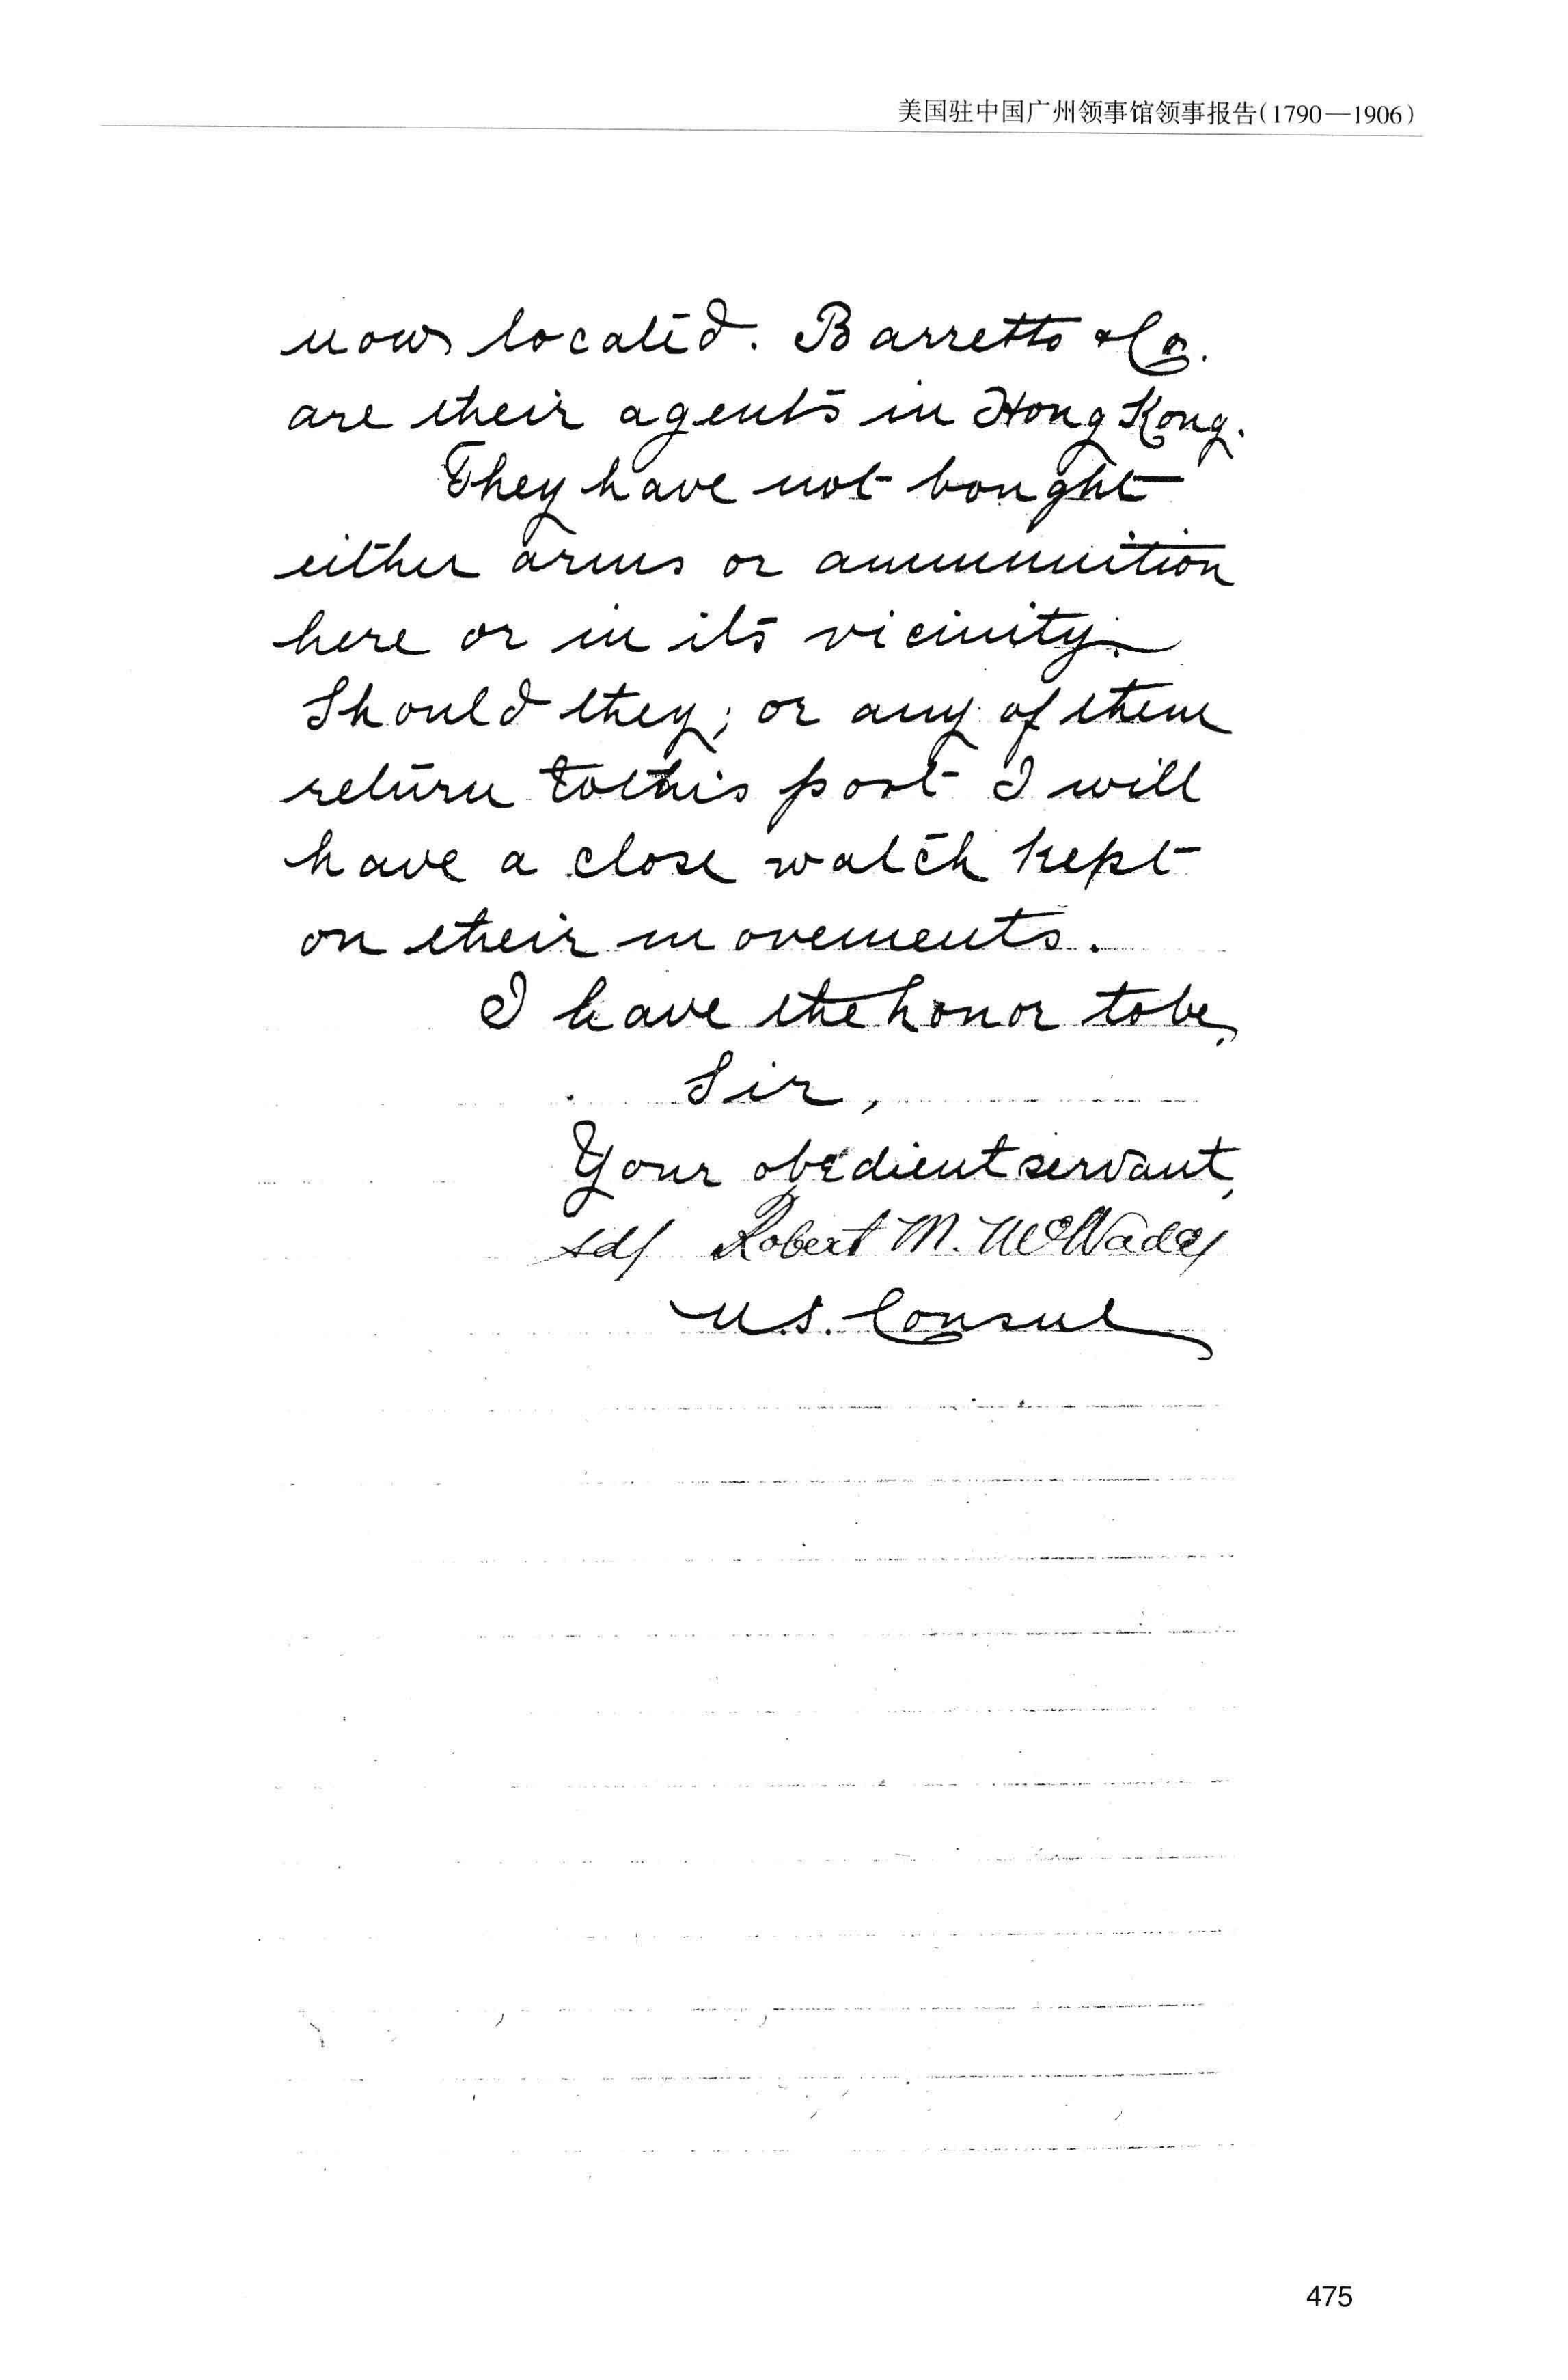 美国驻中国广州领事馆领事报告(1790—1906)
now located. Barretto & Co.
are their agents in Hong Kong.
They have not bought
either arms or ammunition
here or in its vicinity.
Should they, or any of them
return to this port I will
have a close watch kept
on their movements.
I have the honor to be,
Sir,
Your obedient servant,
sd/ Robert M. McWade/
U.S. Consul
475